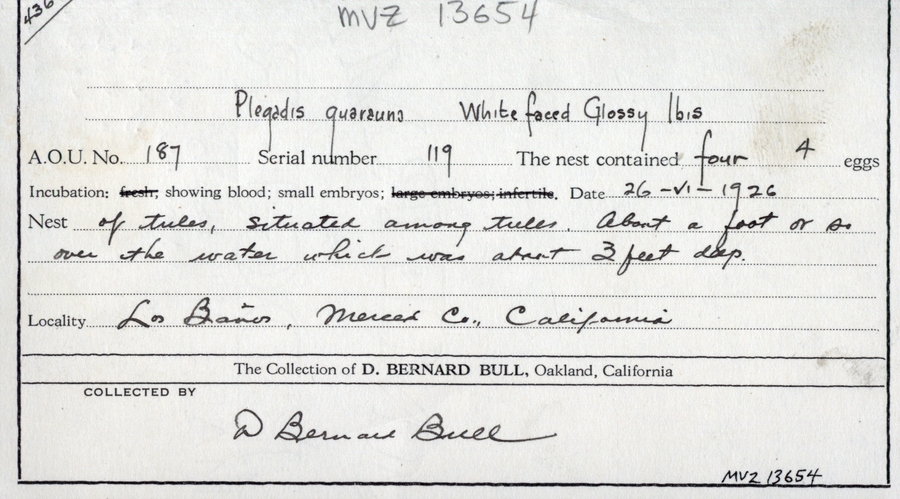 436
MVZ 13654
Plegadis guarauna White faced Glossy Ibis
A.O.U. No. 187 Serial number 119 The nest contained four 4 eggs
Incubation: fresh; showing blood; small embryos; large embryos; infertile. Date 26-VI-1926
Nest of tules, situated among tules. About a foot or so
over the water which was about 3 feet deep.
Locality Los Baños, Merced Co., California
The Collection of D. BERNARD BULL, Oakland, California
COLLECTED BY
D Bernard Bull
MVZ 13654